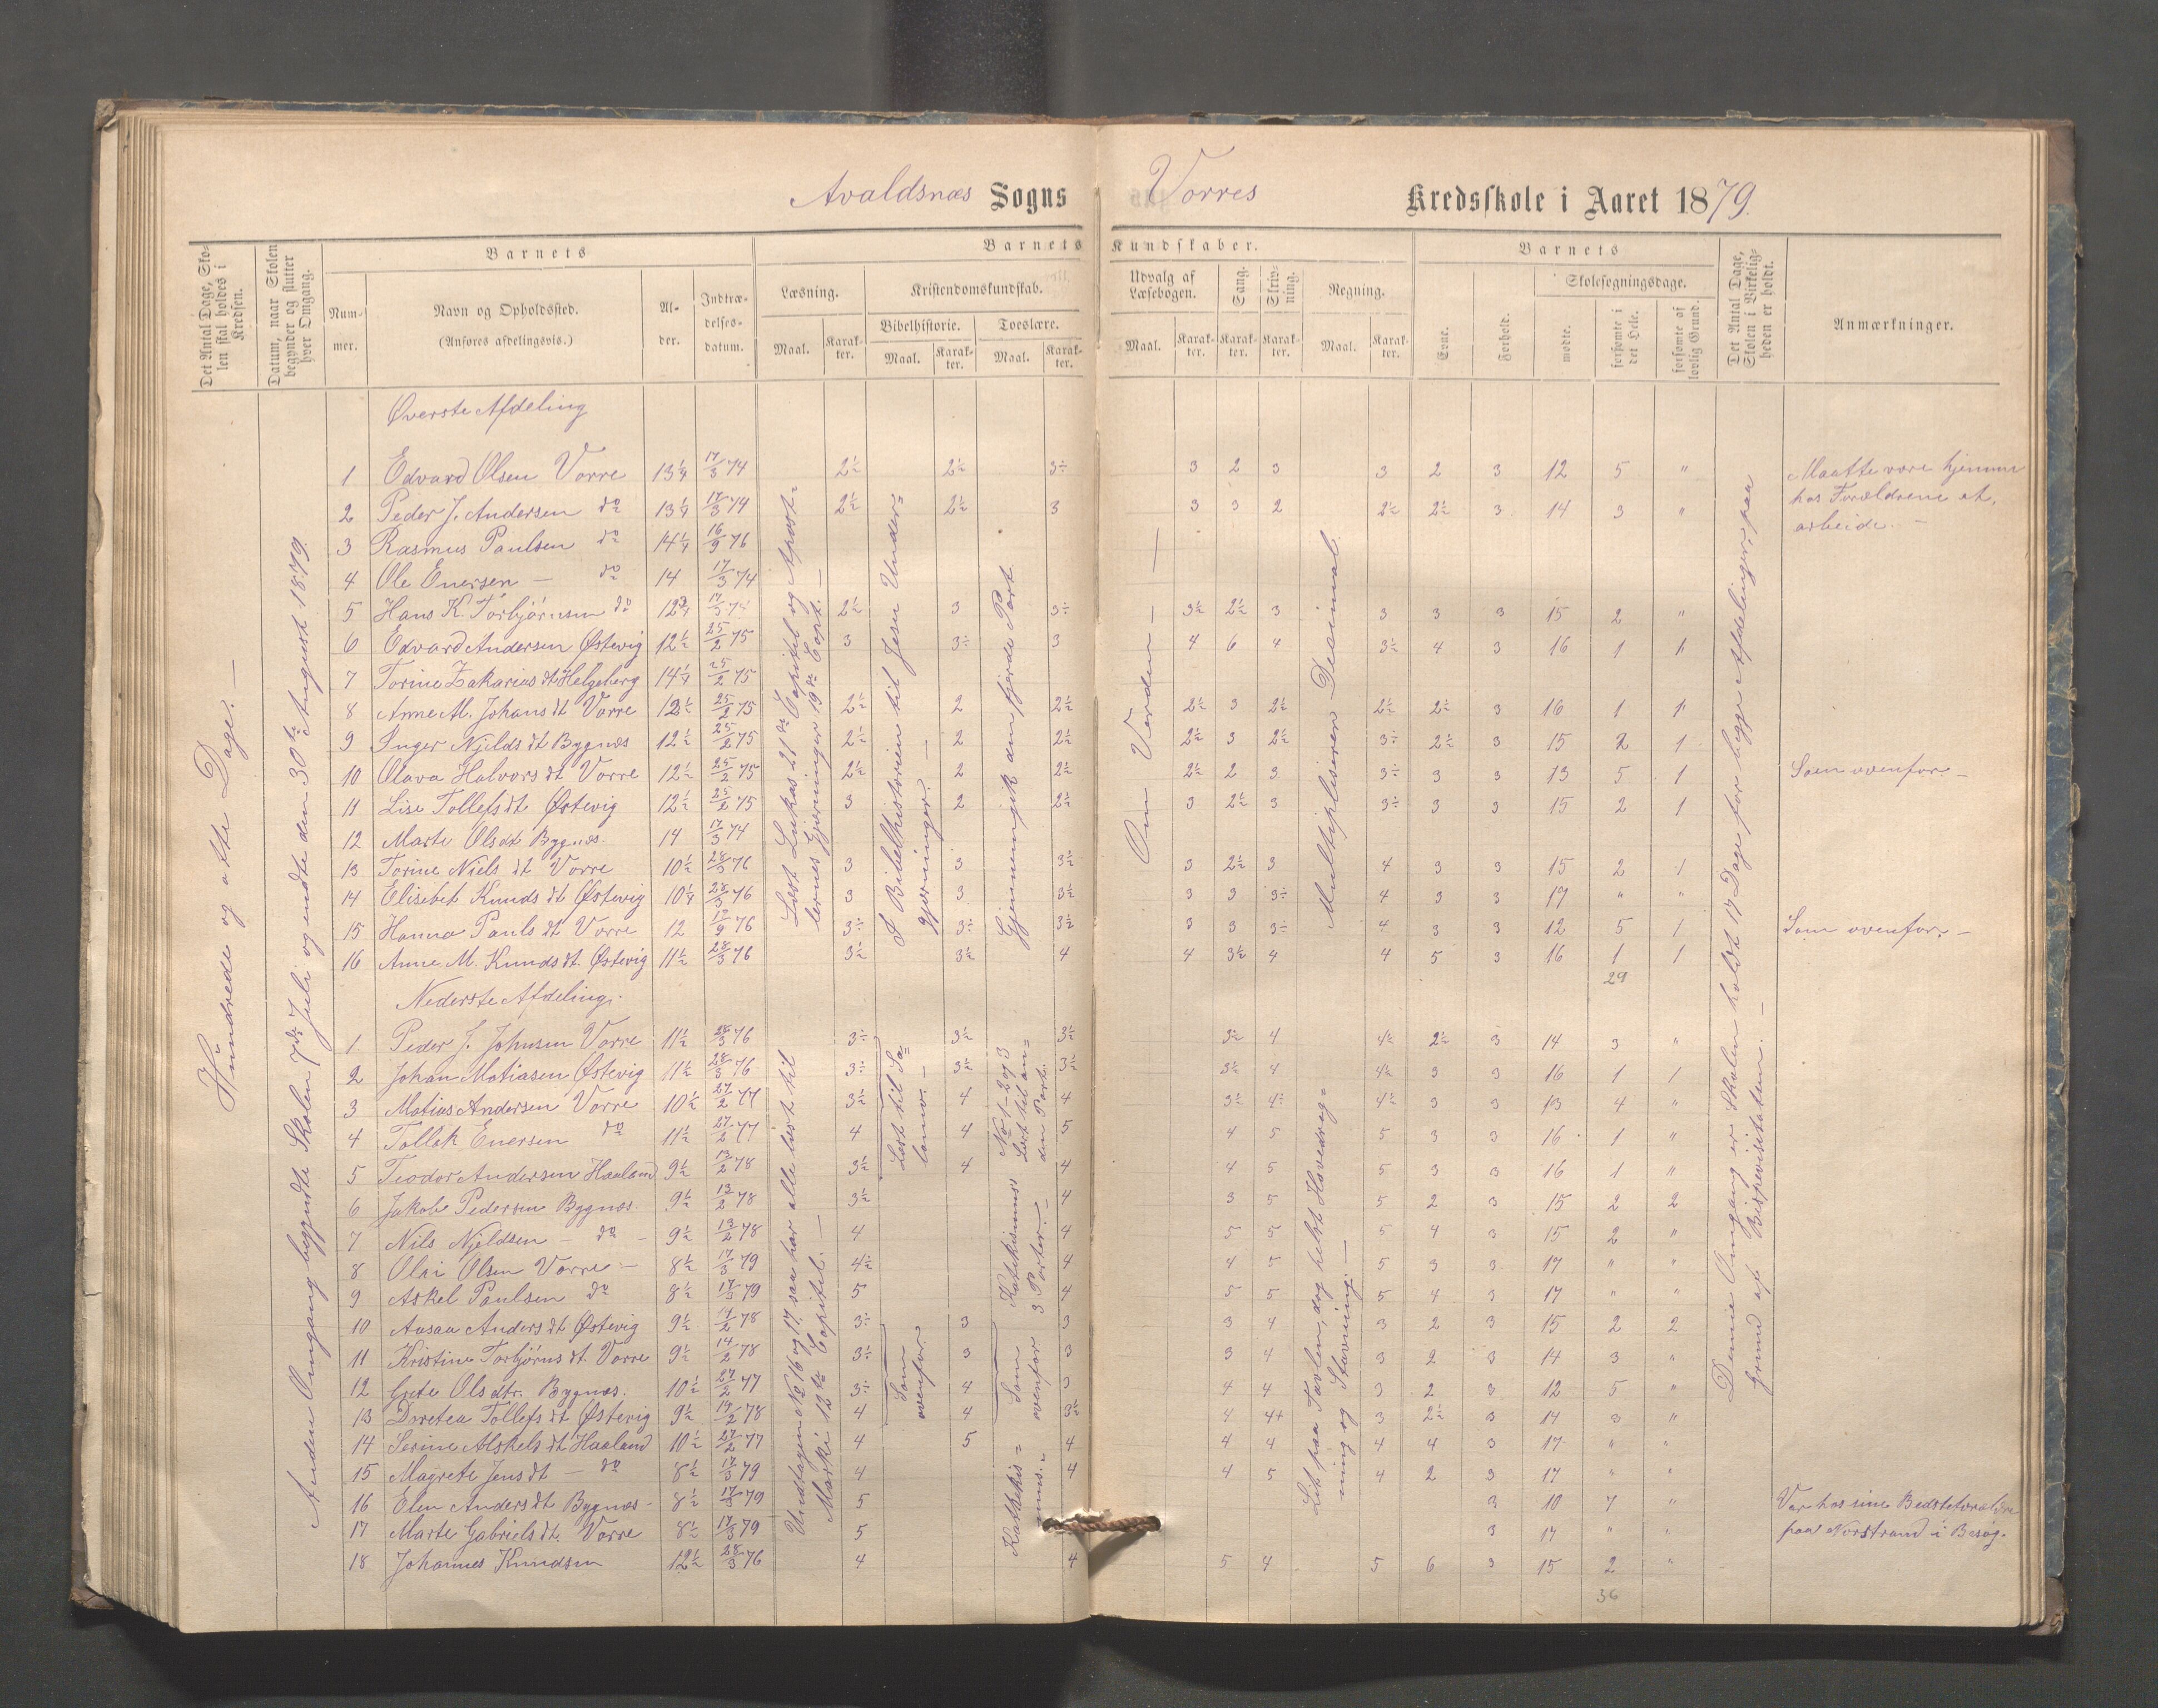 Avaldsnæs Sogns Vorres Kredsskole i Aaret 1879.
Det Antal Dage, Skolen skal holdes i Kredsen.
Datum, naar Skolen begynder og slutter hver Omgang.
Barnets
Nummer.
Navn og Opholdssted.
(Anføres afdelingsvis.)
Alder.
Indtrædelsesdatum.
Barnets Kundskaber.
Læsning.
Maal.
Karakter.
Kristendomskundskab.
Bibelhistorie.
Maal.
Karakter.
Troeslære.
Maal.
Karakter.
Udvalg af Læsebogen.
Maal.
Karakter.
Sang.
Karakter.
Skrivning.
Karakter.
Regning.
Maal.
Karakter.
Barnets
Evne.
Forhold.
Skolesøgningsdage.
mødte.
forsømte i det Hele.
forsømte af lovlig Grund.
Det Antal Dage, Skolen i Virkeligheden er holdt.
Anmærkninger.
Hundrede og otte Dage. —
Anden Omgang begyndte Skolen 7de Juli og endte den 30te August 1879.
Øverste Afdeling
1 Edvard Olsen Vorre 13 1/4 17/3 74 2½ 2½ 3÷ 3 2 3 3 2 3 12 5 "
2 Peder J. Andersen do 13 1/4 17/3 74 2½ 2½ 3 3 3 2 2½ 2½ 3 14 3 "
3 Rasmus Paulsen do 14 1/4 16/9 76
4 Ole Enersen — do 14 17/3 74
5 Hans K. Torbjørnsen do 12 3/4 17/3 74 2½ 3 3÷ 3½ 2½ 3 3 3 3 15 2 "
6 Edvard Andersen Østevig 12½ 25/2 75 3 3÷ 3 4 6 4 3½ 4 3 16 1 1
7 Torine Zakarias dt Helgeberg 14 1/4 25/2 75
8 Anne M. Johans dt Vorre 12½ 25/2 75 2½ 2 2½ 2½ 3 2½ 2½ 2½ 3 16 1 1
9 Inger Njelds dt Bygnes 12½ 25/2 75 2½ 2 2½ 2½ 3 2½ 3÷ 2½ 3 15 2 1
10 Olava Halvors dt Vorre 12½ 25/2 75 2½ 2 2½ 2½ 2 3 3÷ 3 3 13 5 1
11 Lise Tollefs dt Østevig 12½ 25/2 75 3 2 2½ 3 2½ 3 3÷ 3 3 15 2 1
12 Marte Ols dt Bygnes. 14 17/3 74
13 Torine Niels dt Vorre 10½ 28/3 76 3 3 3½ 3 2½ 3 4 3 3 15 2 1
14 Elisebet Knuds dt Østevig 10 1/4 28/3 76 3 3 3½ 3 3 3÷ 4 3 3 17 " "
15 Hanna Pauls dt Vorre 12 19/9 76 3÷ 3÷ 3½ 3 3 3÷ 4 3 3 12 5 1
16 Anne M. Knuds dt. Østevig 11½ 28/3 76 3½ 3½ 4 4 3½ 4 4 5 3 16 1 1
29
Læst Lukas 21de Capitel og Apostlernes Gjerninger 19de Capt. —
I Bibelhistorien til Jesu Undergjerninger. —
Gjennemgik den fjerde Part.
Om Verden — —
Multipliseren Desimal.
Maatte være hjemme
hos Forældrene at
arbeide. —
Som ovenfor. —
Som ovenfor. —
Nederste Afdeling.
1. Peder J. Johnsen Vorre 11½ 28/3 76 3÷ 3½ 3½ 3½ 4 4½ 2½ 3 14 3 "
2 Johan Matiasen Østevig 11½ 28/3 76 3÷ 3½ 3½ 3½ 4 4½ 3 3 16 1 1
3 Matias Andersen Vorre 10½ 27/2 77 3½ 4 4 3½ 4÷ 4½ 3 3 13 4 "
4 Tollek Enersen do 11½ 27/2 77 4 4 5 4 5 5 3 3 16 1 "
5 Teodor Andersen Haaland 9½ 13/2 78 3½ 4 4 4 5 5 3 3 16 1 "
6 Jakob Pedersen Bygnæs 9½ 13/2 78 3½ 4 3 5 5 2 3 15 2 2
7 Nils Njeldsen — do — 9½ 13/2 78 4 4 5 5 5 4 3 15 2 "
8 Olai Olsen Vorre — 8½ 17/3 79 4½ 4 4 5 5 3 3 17 " "
9 Askel Paulsen do 8½ 17/3 79 5 4 5 5 5 4 3 17 " "
10 Aasaa Anders dt Østevig 9½ 14/2 78 3÷ 3 3 3 4 3 2 3 15 2 2
11 Kristine Torbjørns dt. Vorre 9½ 14/2 78 3½ 3 3 3 4 3 2 3 14 3 "
12 Grete Ols dtr. Bygnæs. 10½ 27/2 77 3÷ 4 3 4 4 3 2 3 12 5 "
13 Doretea Tollefs dt Østevig 9½ 19/2 78 4 4 3½ 4 4+ 3 2½ 3 14 3 "
14 Serine Askels dt Haaland 10½ 27/2 77 4 5 4 4 4 4 4 3 17 " "
15 Magrete Jens dt — do 8½ 17/3 79 4 4 4 5 4 2 3 17 " "
16 Elen Anders dt Bygnæs — 8½ 17/3 79 5 3 10 7 "
17 Marte Gabriels dt. Vorre 8½ 17/3 79 5 3 17 " "
18 Johannes Knudsen 12½ 28/3 76 4 4 5 4 5 6 3 15 2 "
36
Undtagen No 16 og 17, saa har alle læst til Marki 12te Capitel. —
Læst til Salamo. —
No 1-2 og 3 Læst til anden Part.
Katekismus 3 Parter. —
Som ovenfor.
Som ovenfor
Katekismus. —
Lit paa Tavlen, dog helst Hovedregning og Stavning. —
Denne Omgang er Skolen holdt 17 Dage for begge Afdelinger, paa Grund af Bispevisitatsen. —
Var hos sine Bedsteforældre
paa Norstrand i Besøg.